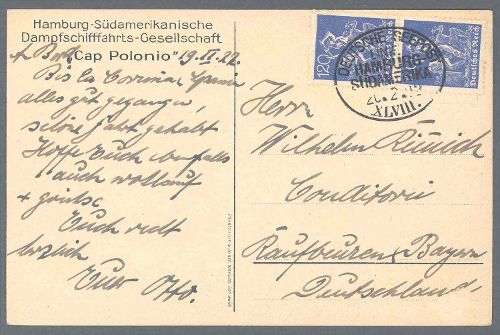 Hamburg-Südamerikanische
Dampfschifffahrts-Gesellschaft
"Cap Polonio" 19.II.22.
Bis La
alles gut gegangen,
schöne Fahrt gehabt
Hoffe Euch ebenfalls
auch wohlauf
Euch recht
herzlich
Euer Otto.
120
Deutsches Reich
DEUTSCHE SEEPOST
LINIE
HAMBURG
SÜDAMERIKA
XLVIII.
Herrn
Wilhelm
Conditorei
Kaufbeuren Bayern
Deutschland